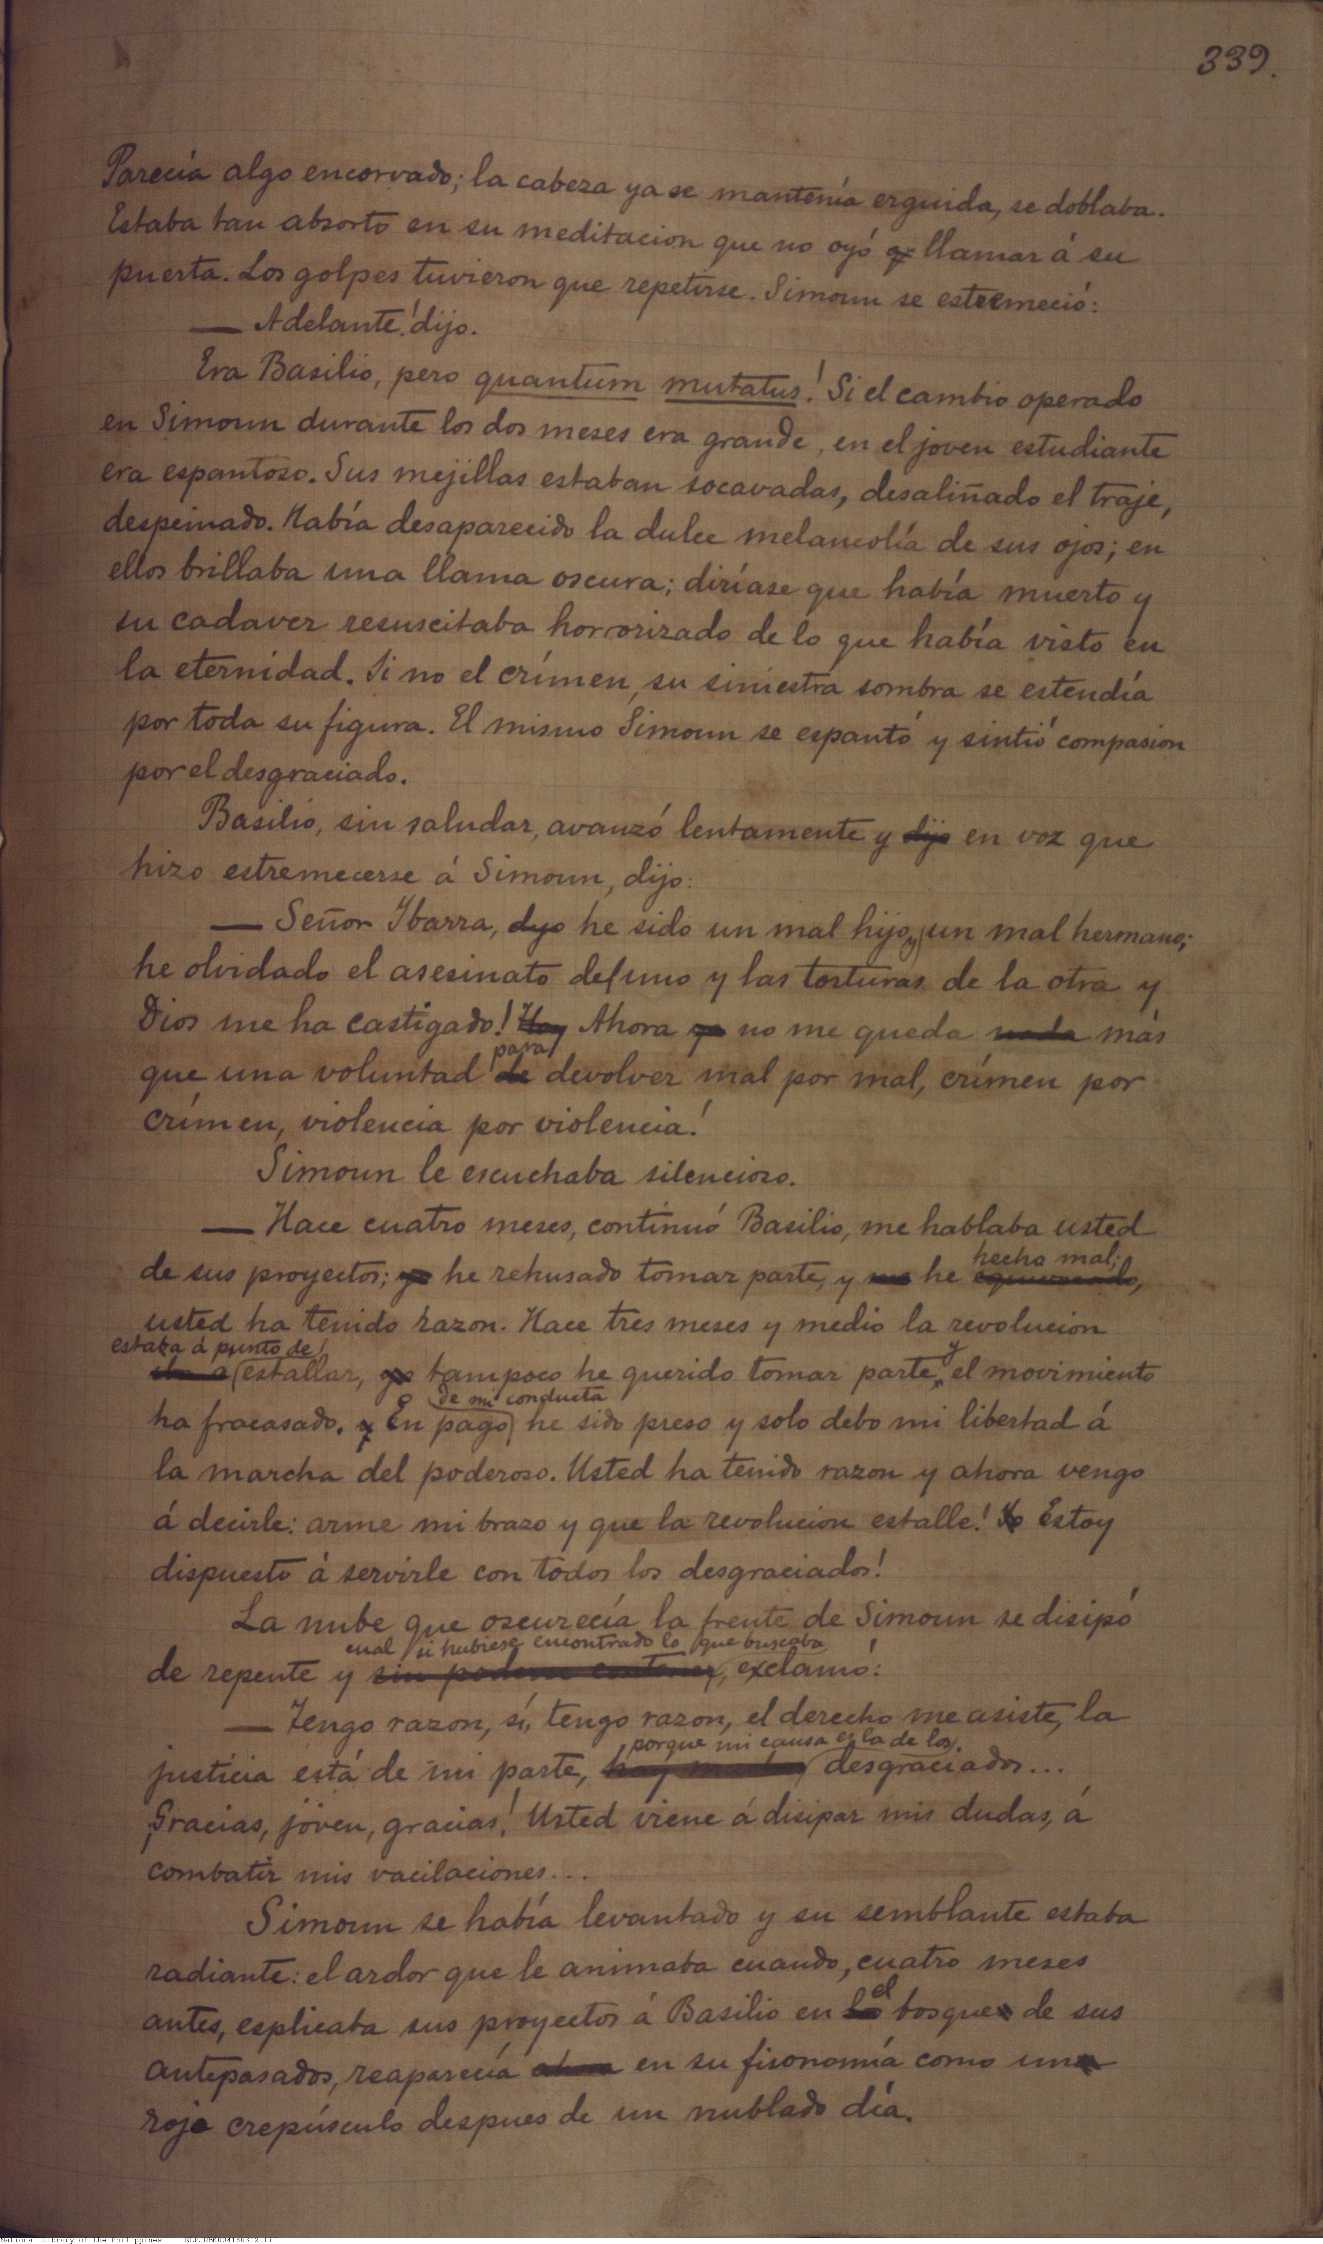 339.
Parecía algo encorvado; la cabeza ya se mantenía erguida, se doblaba.
Estaba tan absorto en su meditacion que no oyó q llamar á su
puerta. Los golpes tuvieron que repetirse. Simoun se estremeció:
— Adelante! dijo.
Era Basilio, pero quantum mutatus! Si el cambio operado
en Simoun durante los dos meses era grande, en el joven estudiante
era espantoso. Sus mejillas estaban socavadas, desaliñado el traje,
despeinado. Había desaparecido la dulce melancolía de sus ojos; en
ellos brillaba una llama oscura; diríase que había muerto y
su cadaver resuscitaba horrorizado de lo que había visto en
la eternidad. Si no el crímen, su siniestra sombra se estendía
por toda su figura. El mismo Simoun se espantó y sintió compasion
por el desgraciado.
Basilio, sin saludar, avanzó lentamente y dijo en voz que
hizo estremecerse á Simoun, dijo:
— Señor Ibarra, dijo he sido un mal hijo y un mal hermano;
he olvidado el asesinato del uno y las torturas de la otra y
Dios me ha castigado! Hoy Ahora ya no me queda nada más
para
que una voluntad de devolver mal por mal, crímen por
crímen, violencia por violencia!
Simoun le escuchaba silencioso.
— Hace cuatro meses, continuó Basilio, me hablaba usted
hecho mal;
de sus proyectos; yo he rehusado tomar parte, y me he equivocado,
usted ha tenido razon. Hace tres meses y medio la revolucion
estaba á punto de
iba a estallar, yo tampoco he querido tomar parte y el movimiento
de mi conducta
ha fracasado. y En pago he sido preso y solo debo mi libertad á
la marcha del poderoso. Usted ha tenido razon y ahora vengo
á decirle: arme mi brazo y que la revolucion estalle! Yo Estoy
dispuesto á servirle con todos los desgraciados!
La nube que oscurecía la frente de Simoun se disipó
cual si hubiese encontrado lo que buscaba
de repente y sin poderse contener, exclamó:
— Tengo razon, sí, tengo razon, el derecho me asiste, la
porque mi causa es la de los
justicia está de mi parte, hay desgraciados...
Gracias, joven, gracias! Usted viene á disipar mis dudas, á
combatir mis vacilaciones...
Simoun se había levantado y su semblante estaba
radiante: el ardor que le animaba cuando, cuatro meses
el
antes, esplicaba sus proyectos á Basilio en lo bosque de sus
antepasados, reaparecía ahora en su fisonomía como un
rojo crepúsculo despues de un nublado día.
National Library of the Philippines